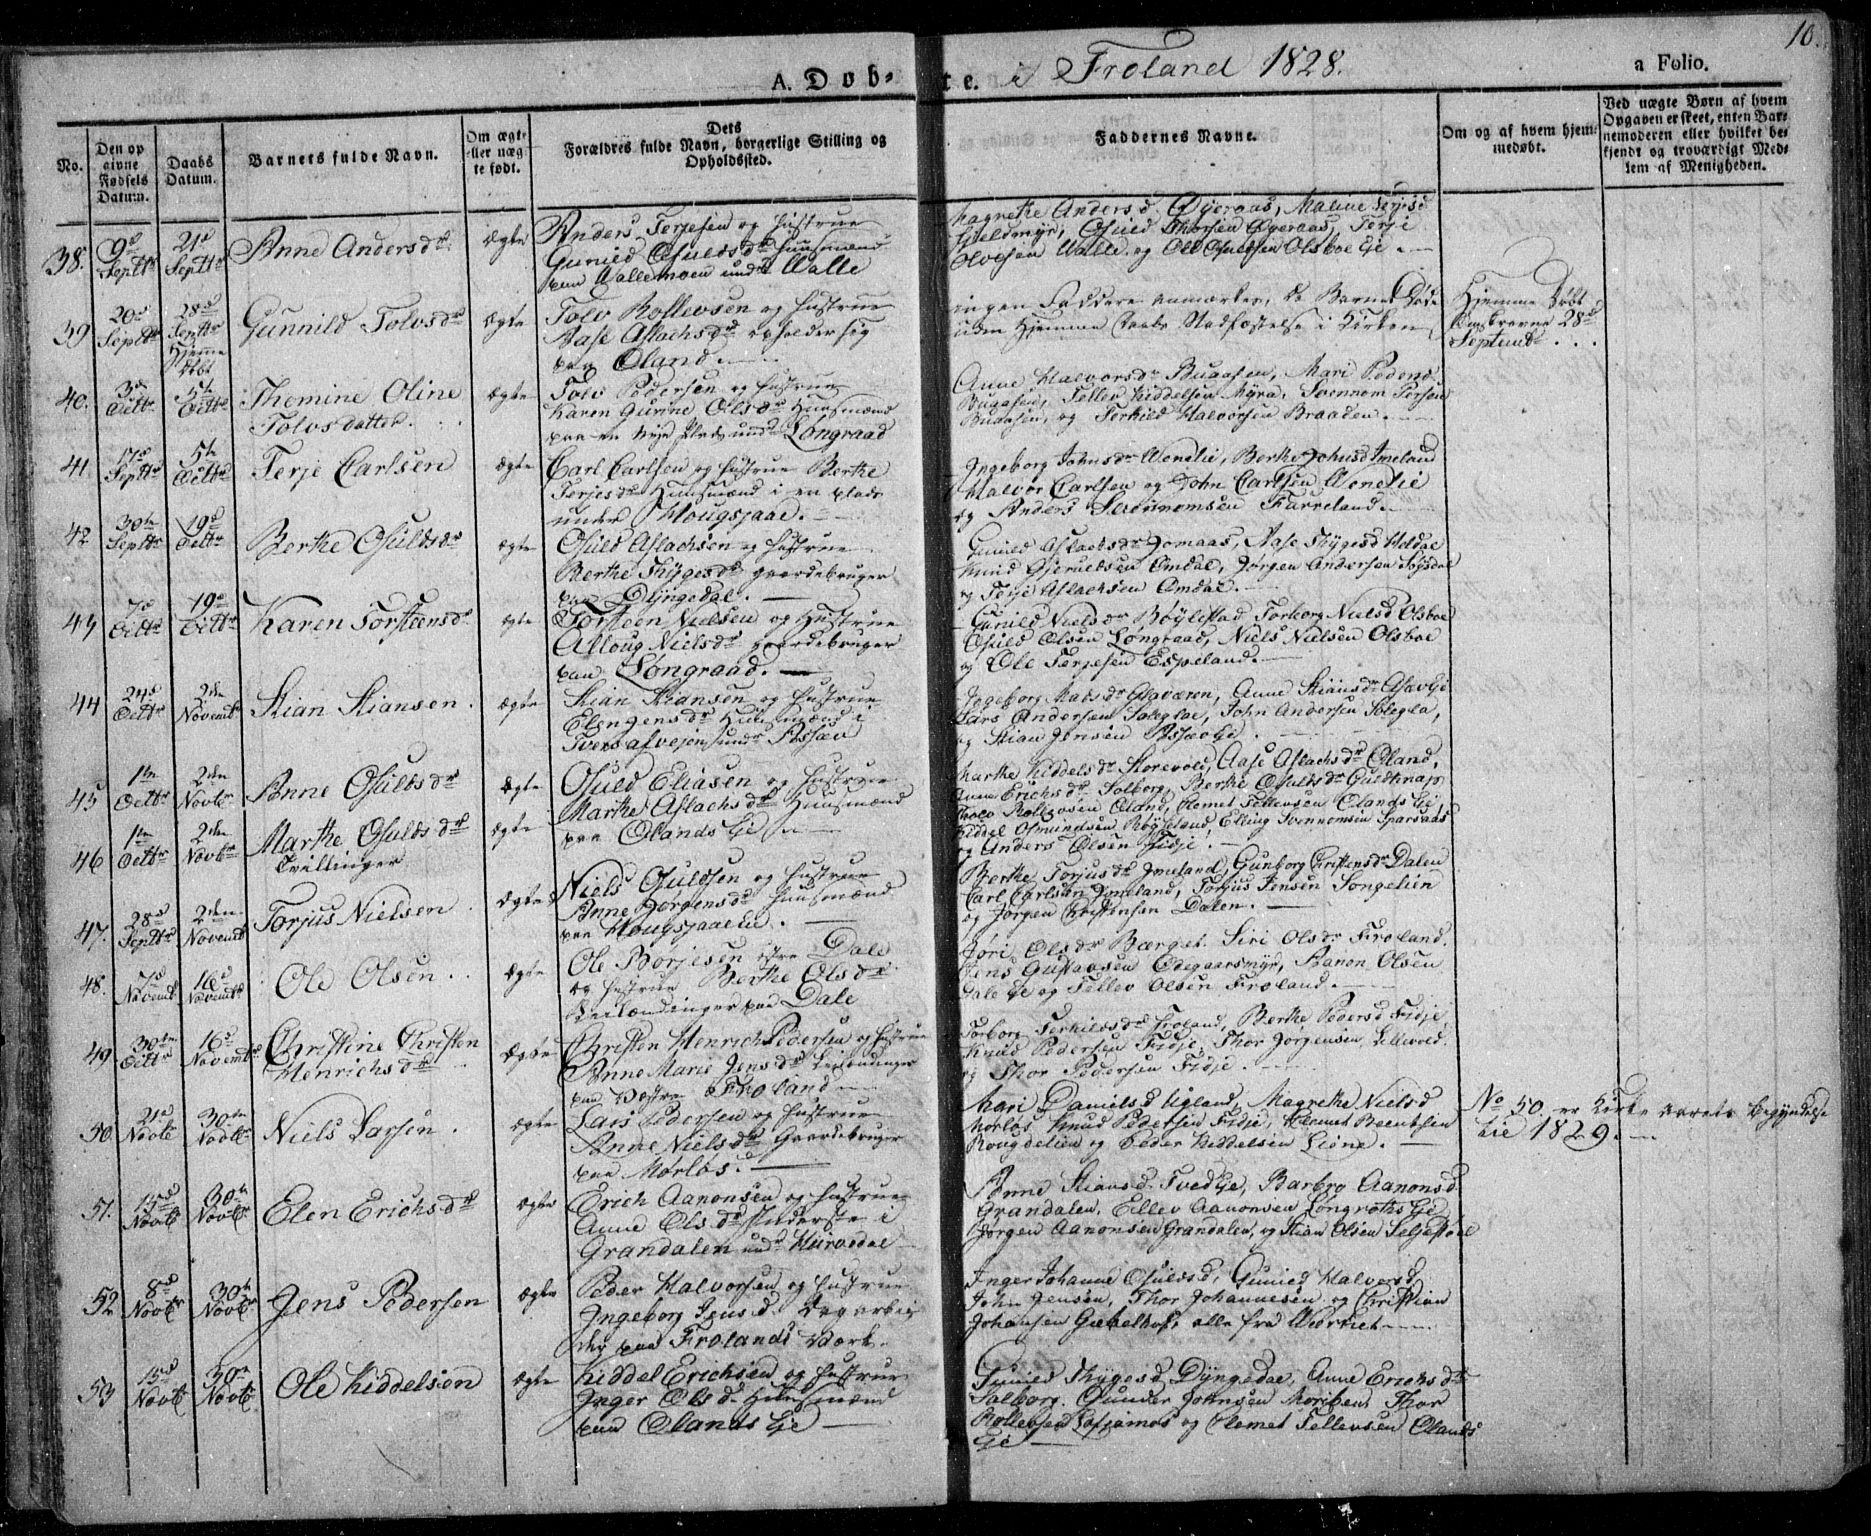 10.
A. Døb- te. i Froland 1828. a Folio.
No.
Den op
givne
Fødsels
Datum.
Daabs
Datum.
Barnets fulde Navn.
Om ægt-
eller uæg-
te født.
Dets
Forældres fulde Navn, borgerlige Stilling og
Opholdssted.
Faddernes Navne.
Om og af hvem hjem-
medøbt.
Ved uægte Børn af hvem
Opgaven er skeet, enten Bar-
nemoderen eller hvilket be-
kjendt og troværdigt Med-
lem af Menigheden.
38. 9d Septbr 21d Septbr Anne Andersdr ægte
Anders Terjesen og Hustrue
Gunild Osuldsdr Huusmænd
paa Wallemoen under Walle
Magrethe Andersd Øyeraas, Malene Terjesd
Hieldmyr, Osuld Thorsen Øyeraas, Terje
Olvesen Walle og Ole Osuldsen Olsboe Eie.
39 20d Septbr 28d Septbr Hjemme Døbt Gunnild Tolvsdr ægte
Tolv Rollevsen og Hustrue
Aase Aslachsdr opholder sig
paa Øland.
ingen Faddere anmærkes, da Barnet døde
uden Hjemme Daabs Stadfæstelse i Kirken
Hjemme Døbt
28d
Septembr.
40. 3d Octbr 5te Octbr Thomine Oline
Tolvsdatter. ægte
Tolv Pedersen og Hustrue
Karen Gurine Olsdr Huusmænd
paa en nye Plads undr Longraad
Anne Halvorsdr Buaasen, Mari Pedersd
Buaasen, Tellev Kiddelsen Myra, Svennom Persen
Buaasen, og Terkild Halvorsen Braaden.
41. 17d Septbr 5te Octbr Terje Carlsen ægte
Carl Carlsen og Hustrue Berthe
Terjesdr Huusmænd i en Plads
under Hougsjaae.
Ingeborg Johnsdr Wenelie, Berthe Johnsd Imeland
Halvor Carlsen og John Carlsen Wenelie
og Anders Svennomsen Furreland.
42 30te Septbr 19d Octbr Berthe Osuldsdr ægte
Osuld Aslachsen og Hustrue
Berthe Thygesdr Gaardebruger
paa Dyngedal.
Gunild Aslachsdr Jomaas, Aase Thygesd Heldal
Knud Gjeruldsen Omdal, Jørgen Andersen
og Terje Aslachsen Omdal.
43 7d Octbr 19d Octbr Karen Torsteensdr ægte
Torsteen Nielsen og Hustrue
Alloug Nielsdr Gaardebruger
paa Longraad.
Gunild Nielsdr Bøylestad, Torborg Nielsd Olsboe
Osuld Olsen Longraad, Niels Nielsen Olsboe
og Ole Terjesen Espeland.
44 24d Octbr 2den Novembr Stian Stiansen. ægte
Stian Stiansen og Hustrue
Huusmænd i
Tversafvejen undr Assæv
Ingeborg Matsdr, Anne Stiansdr
Lars Andersen, John Andersen
og Stian Jensen Assæv Eie.
45 1te Octbr 2den Novbr Anne Osuldsdr ægte
46 1te Octbr 2den Novbr Marthe Osuldsdr ægte
Tvillinger
Osuld Eliasen og Hustrue
Marthe Aslachsdr Huusmænd
paa Ølands Eie
Marthe Kiddelsdr Storevold, Aase Aslachsdr Øland,
Anne Erichsdr Solborg, Berthe Osuldsdr Guldknap
Tolv Rollevsen Øland, Clemet Tellevsen Ølands Eie
Kiddel Osmundsen Bøyleland, Elling Svennomsen Sparsaas
og Anders Olsen Fidje.
47. 28d Septbr 2den Novembr Torjus Nielsen ægte
Niels Osuldsen og Hustrue
Anne Jørgensdr Huusmænd
paa Hougsjaaelie.
Berthe Torjusdr Imeland, Gunborg Christensdr Dalen
Carl Carlsen Imeland, Torjus Jensen Songelien
og Jørgen Christensen Dalen.
48. 7d Novembr 16d Novembr Ole Olsen. ægte
Ole Borjesen Dale
og Hustrue Berthe Olsdr
Leilændinger paa Dale
Jøri Olsdr Børget. Siri Olsdr Froland.
Jens Gustavsen Ødegaarsmyr, Aanon Olsen
Dale Eie og Tellev Olsen Froland.
49 30te Octbr 16d Novembr Christine Christen
Henrichsdr ægte
Christen Henrich Pedersen og Hustrue
Anne Marie Jensdr Leilændinger
paa Vestre Froland
Torborg Terkildsdr Froland, Berthe Pedersd Fidje
Knud Pedersen Fidje, Thor Jørgensen Lillevold.
og Thor Pedersen Fidje.
50. 21d Novbr 30te Novbr Niels Larsen. ægte
Lars Pedersen og Hustrue
Anne Nielsdr Gaardebruger
paa Morløs.
Mari Danielsd Ugland, Magrethe Nielsd
Morløs, Knud Pedersen Fidje, Clemet Berntsen
Rougdelien og Peder Kiddelsen Lione.
No 50. er Kirke Aarets Begyndelse
1829.
51. 15d Novbr 30te Novbr Elen Erichsdr ægte
Erich Aanonsen og Hustrue
Anne Olsdr Inderster i
Grandalen undr Hurvedal
Anne Stiansd Tved Eje, Barbro Aanonsd
Grandalen, Tellev Aanonsen Longrøths Eie
Jørgen Aanonsen Grandalen, og Stian Olsen
52 8d Novbr 30te Novbr Jens Pedersen ægte
Peder Halvorsen og Hustrue
Ingeborg Jensd. Dagarbei
der paa Frolands Værk.
Inger Johanne Osuldsd, Gunild Halvorsd
John Jensen, Thor Johannesen og Christian
Johansen, alle fra Værket
53 15d Novbr 30te Novbr Ole Kiddelsen ægte
Kiddel Erichsen og Hustrue
Inger Olsd. Huusmænd
paa Ølands Eie
Gunild Thygesd Dyngedal, Anne Erichsdr
Solborg. Gunder Johnsen, Thor
Rollevsen og Clemet Tellevsen Ølands
Eie